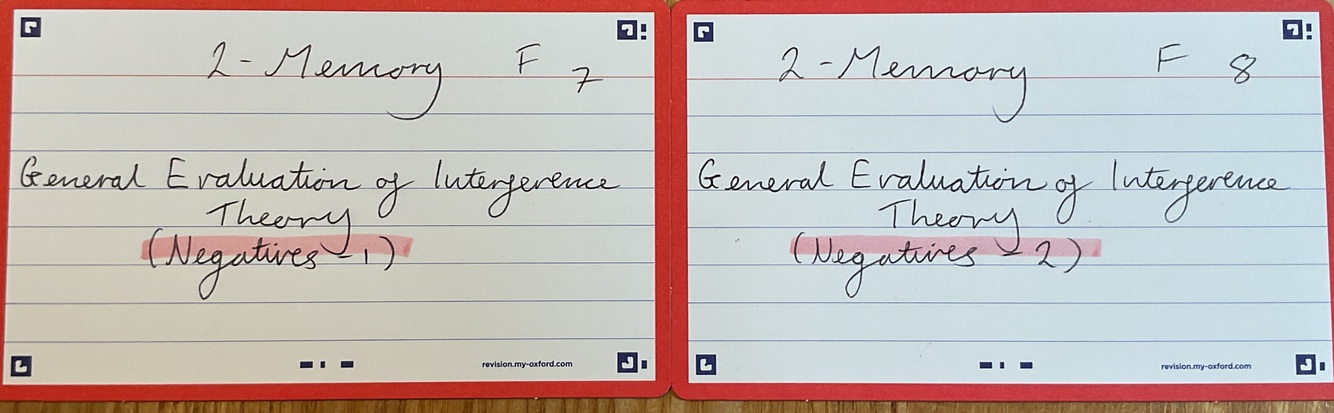 2-Memory F 7
General Evaluation of Interference
Theory
(Negatives - 1)
revision.my-oxford.com
2-Memory F 8
General Evaluation of Interference
Theory
(Negatives - 2)
revision.my-oxford.com